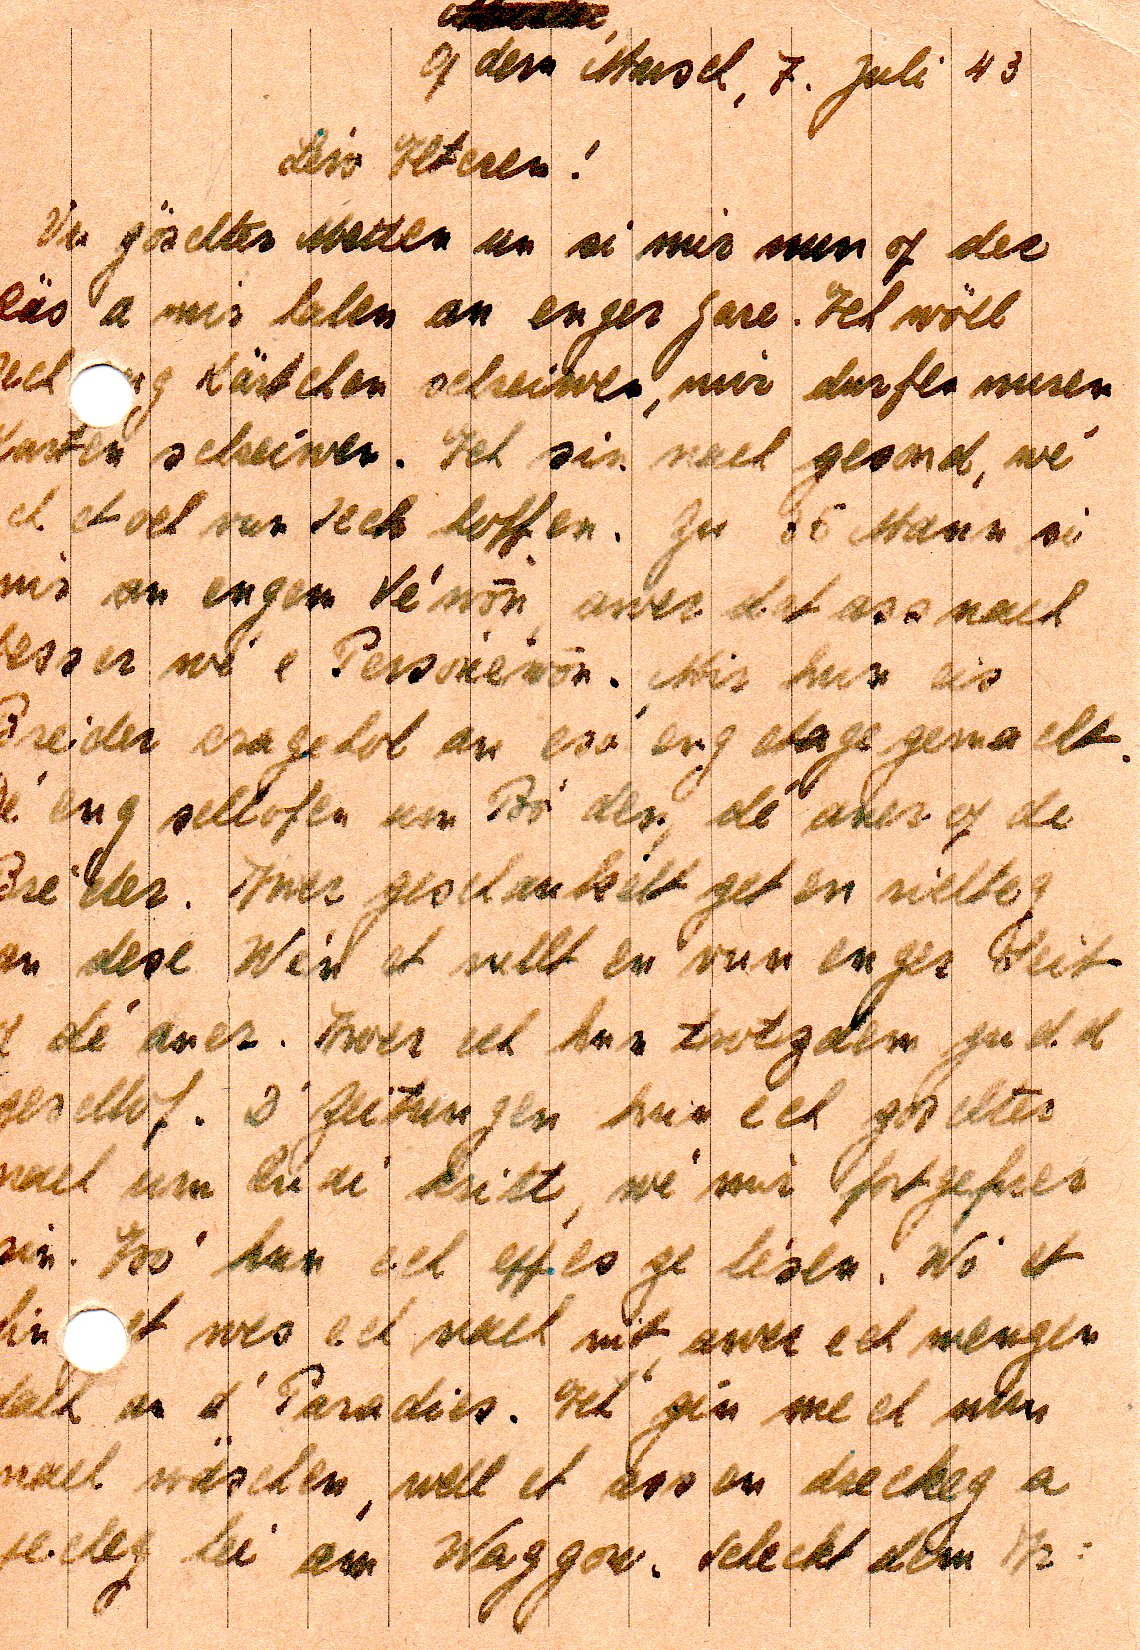 op dem Musel, 7. Juli 43
Léiw Elteren!
Vu göschter Metten un si mir nun op der
a mir halen an enger Gare. Ech wöll
Kärtchen schreiwen, mir durfen nuren
Karten schreiwen. Ech sin nach gesond, wé
ech et och vun iech hoffen. Zu 35 Mann si
mir an engem Véwōn, awer dat ass nach
besser wé e Personéwōn. Mir hun eis
Breider eragehol an esó eng etage gemacht.
Dé eng schlofen um Bó den, dé aner op de
Bré der. Awer geschaukelt get en richteg
an dese Wén et rullt en vun enger Seit
op dé aner. Awer ech hun trotzdem gudd
geschlof. D'Zeitungen hun ech göschter
nach um kritt, wé mir fortgefuer
sin. Esó hun ech eppes ze liesen. Wó et
hin et wes ech nach nit, awer ech mengen
dach an d'Paradies. Ech gin mech nun
nach wäschen, well et ass en dreckeg a
hei am Waggon. Schéckt dem